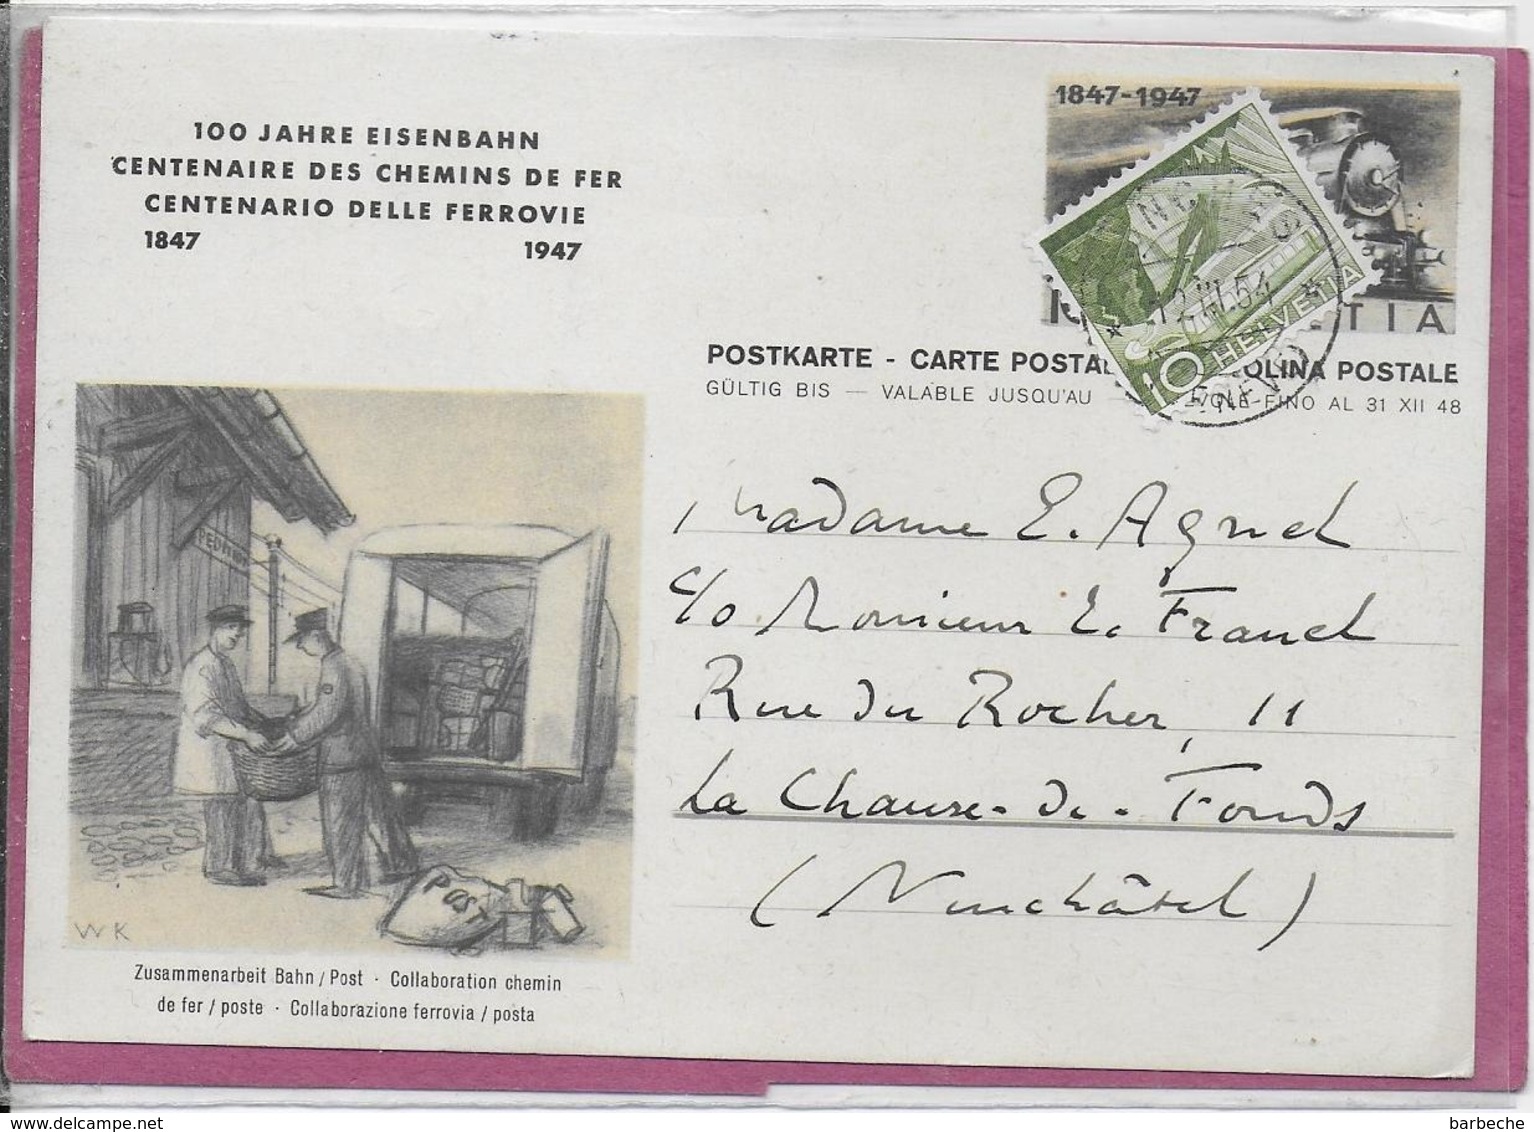 100 JAHRE EISENBAHN
CENTENAIRE DES CHEMINS DE FER
CENTENARIO DELLE FERROVIE
1847 1947
1847-1947
HELVETIA
10
TIA
POSTKARTE - CARTE POSTAL OLINA POSTALE
GÜLTIG BIS — VALABLE JUSQU'AU FINO AL 31 XII 48
Madame E. Agnel
c/o Monsieur E. Franel
Rue du Rocher, 11
La Chaux-de-Fonds
(Neuchâtel)
POST
WK
Zusammenarbeit Bahn / Post · Collaboration chemin
de fer / poste · Collaborazione ferrovia / posta
barbeche